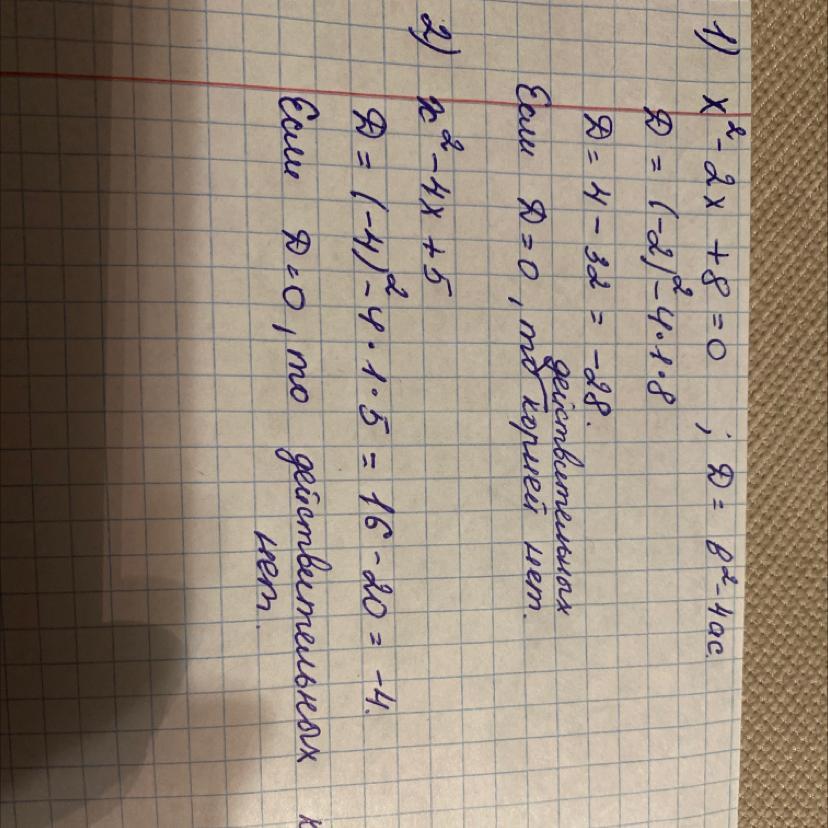 1) x² - 2x + 8 = 0 ; D = b² - 4ac.
D = (-2)² - 4·1·8
D = 4 - 32 = -28.
действительных
Если D=0, то корней нет.
2) x² - 4x + 5
D = (-4)² - 4·1·5 = 16 - 20 = -4.
Если D=0, то действительных к
нет.